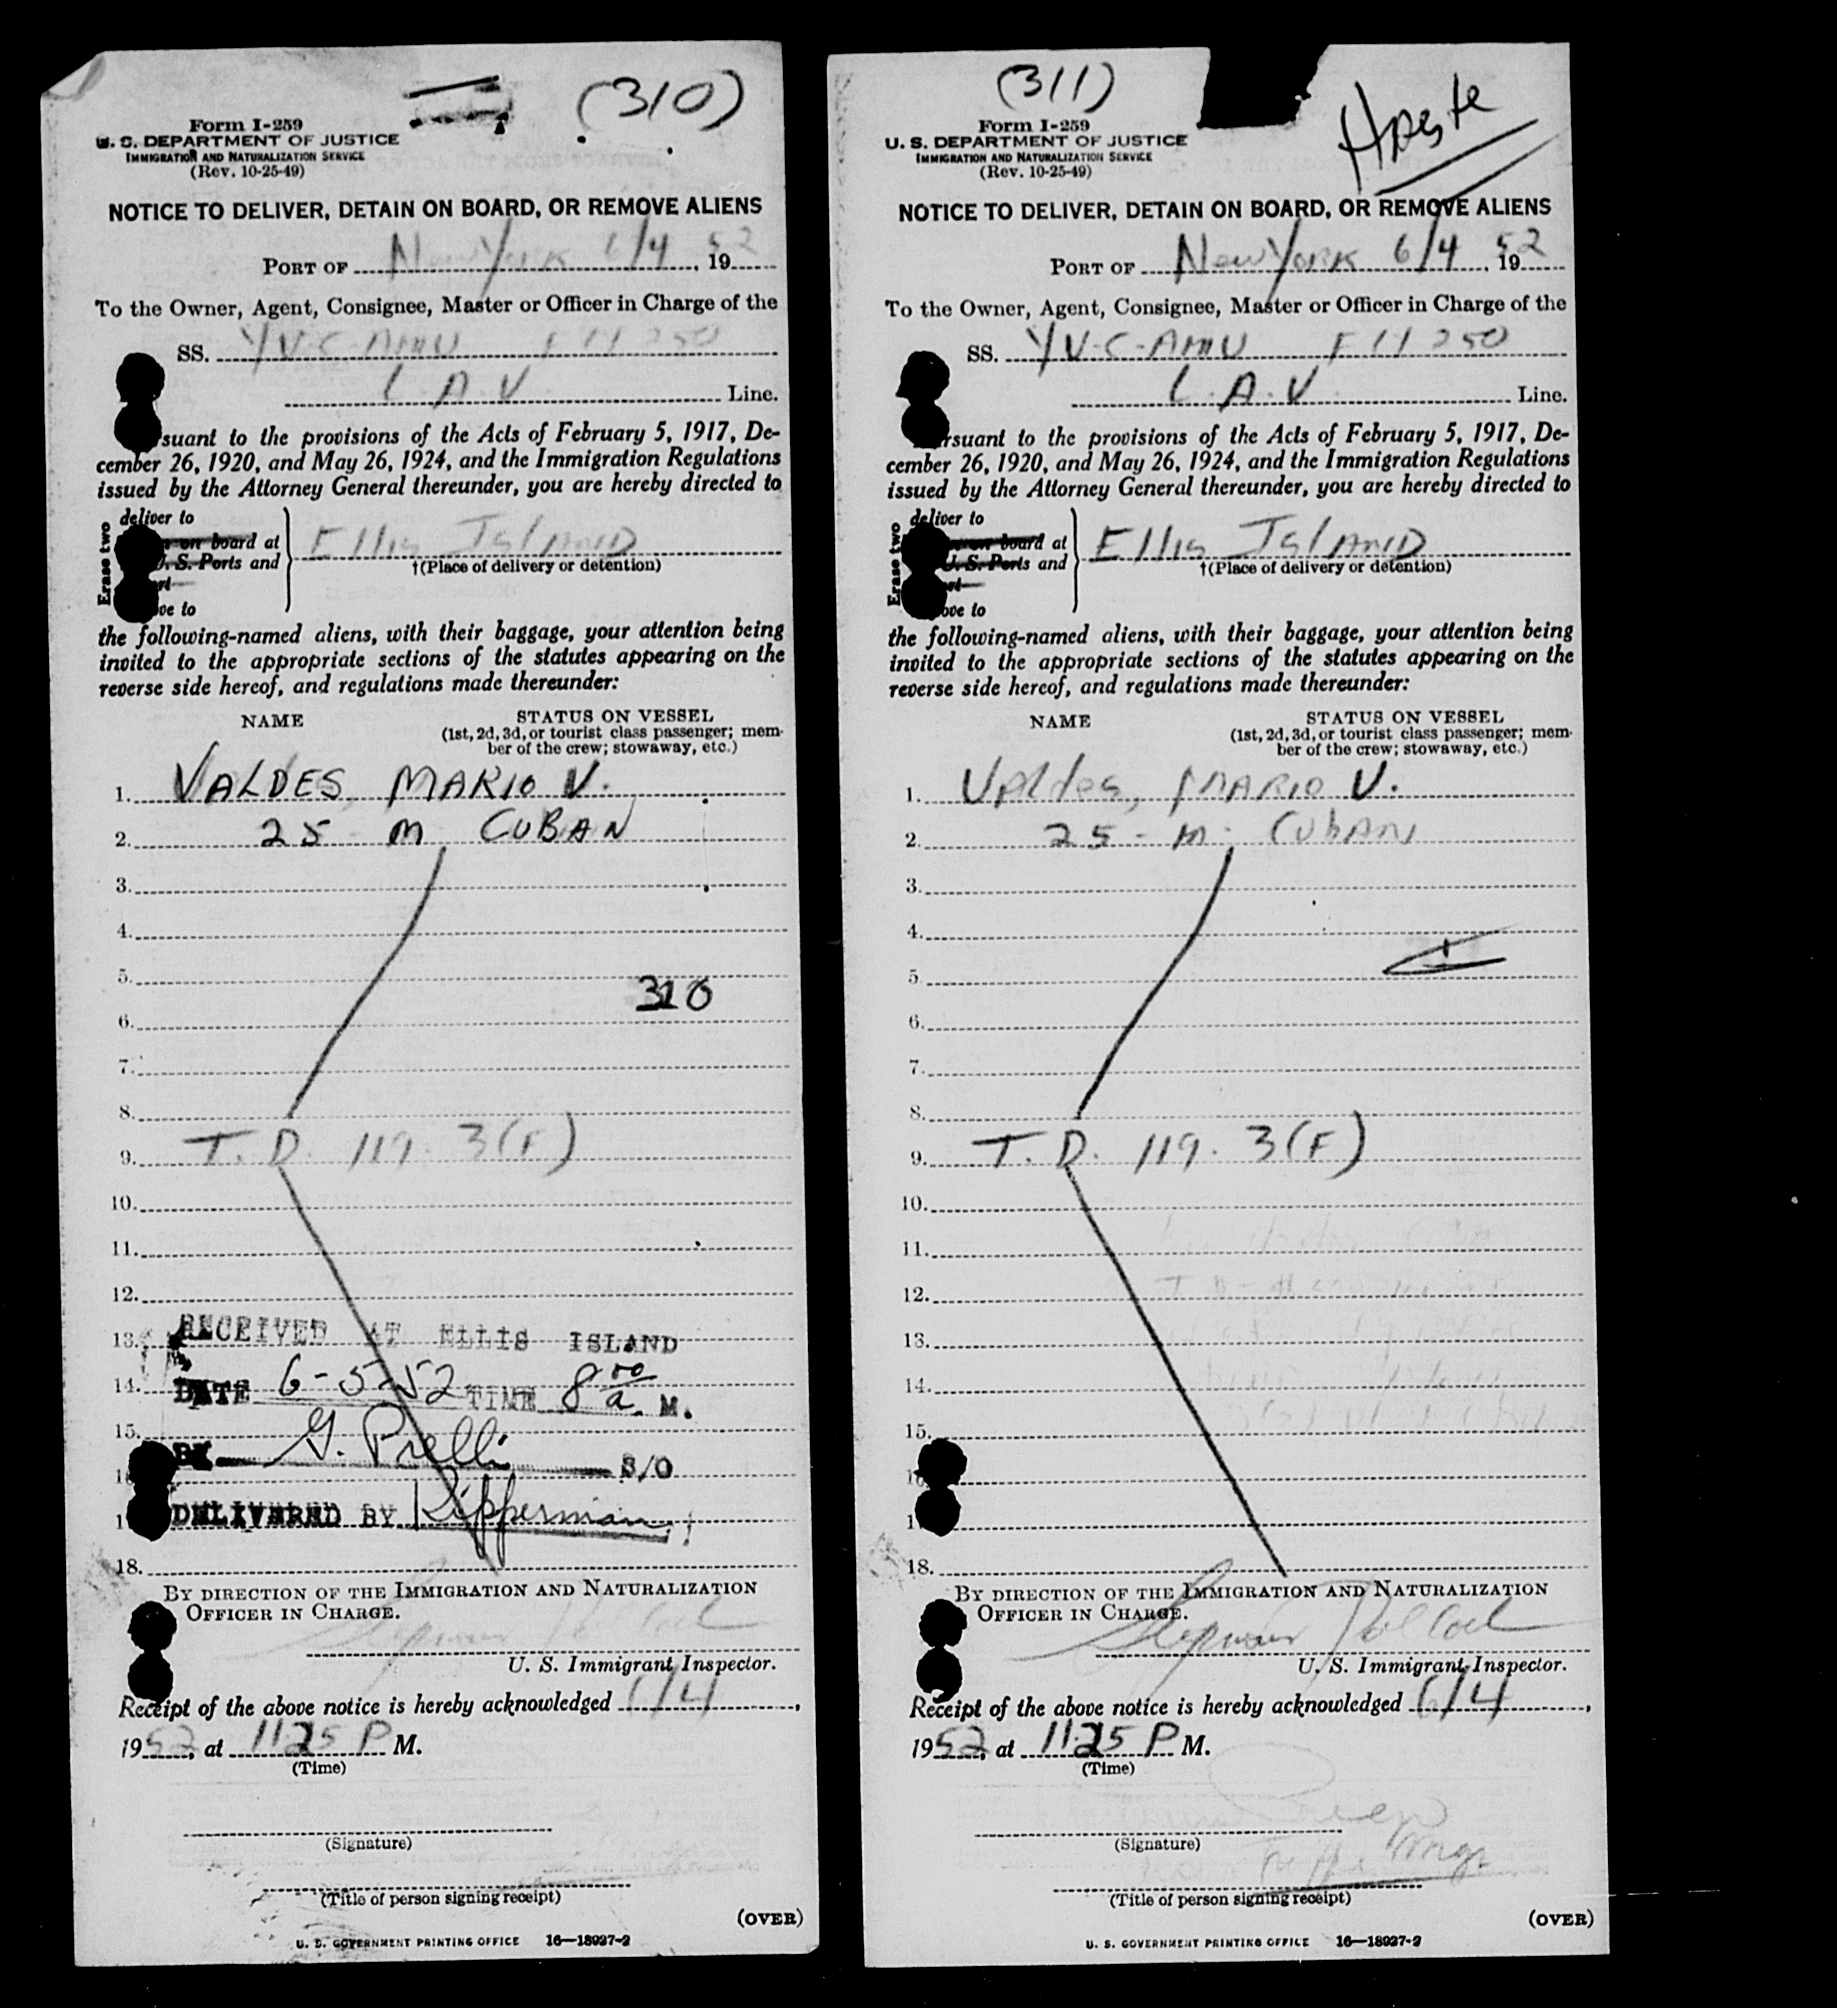 (310)
Form I-259
U. S. DEPARTMENT OF JUSTICE
IMMIGRATION AND NATURALIZATION SERVICE
(Rev. 10-25-49)
NOTICE TO DELIVER, DETAIN ON BOARD, OR REMOVE ALIENS
PORT OF New York 6/4, 1952
To the Owner, Agent, Consignee, Master or Officer in Charge of the
SS. YV-C-AMU F 11 250
L.A.V Line.
suant to the provisions of the Acts of February 5, 1917, De-
cember 26, 1920, and May 26, 1924, and the Immigration Regulations
issued by the Attorney General thereunder, you are hereby directed to
Erase two
deliver to
on board at
U. S. Ports and
ve to
Ellis Island
†(Place of delivery or detention)
the following-named aliens, with their baggage, your attention being
invited to the appropriate sections of the statutes appearing on the
reverse side hereof, and regulations made thereunder:
NAME STATUS ON VESSEL
(1st, 2d, 3d, or tourist class passenger; mem-
ber of the crew; stowaway, etc.)
1. VALDES, MARIO V.
2. 25 M CUBAN
3.
4.
5.
310
6.
7.
8.
9. T.D. 119.3(F)
10.
11.
12.
13. RECEIVED AT ELLIS ISLAND
14. DATE 6-5-52 TIME 8 00 a. M.
15.
BY G. Prelli S/O
DELIVERED BY Kipperman
18.
BY DIRECTION OF THE IMMIGRATION AND NATURALIZATION
OFFICER IN CHARGE.
U. S. Immigrant Inspector.
Receipt of the above notice is hereby acknowledged 6/4,
1952, at 1125 P M.
(Time)
(Signature)
(Title of person signing receipt)
(OVER)
U. S. GOVERNMENT PRINTING OFFICE 16—18927-2
(311)
Haste
Form I-259
U. S. DEPARTMENT OF JUSTICE
IMMIGRATION AND NATURALIZATION SERVICE
(Rev. 10-25-49)
NOTICE TO DELIVER, DETAIN ON BOARD, OR REMOVE ALIENS
PORT OF New York 6/4, 1952
To the Owner, Agent, Consignee, Master or Officer in Charge of the
SS. YV-C-AMU F 11 250
L.A.V. Line.
rsuant to the provisions of the Acts of February 5, 1917, De-
cember 26, 1920, and May 26, 1924, and the Immigration Regulations
issued by the Attorney General thereunder, you are hereby directed to
Erase two
deliver to
on board at
U. S. Ports and
ove to
Ellis Island
†(Place of delivery or detention)
the following-named aliens, with their baggage, your attention being
invited to the appropriate sections of the statutes appearing on the
reverse side hereof, and regulations made thereunder:
NAME STATUS ON VESSEL
(1st, 2d, 3d, or tourist class passenger; mem-
ber of the crew; stowaway, etc.)
1. Valdes, MARIO V.
2. 25 - M - Cuban
3.
4.
5.
6.
7.
8.
9. T.D. 119.3(F)
10.
11.
12.
13.
14.
15.
18.
BY DIRECTION OF THE IMMIGRATION AND NATURALIZATION
OFFICER IN CHARGE.
U. S. Immigrant Inspector.
Receipt of the above notice is hereby acknowledged 6/4,
1952, at 1125 P M.
(Time)
(Signature)
(Title of person signing receipt)
(OVER)
U. S. GOVERNMENT PRINTING OFFICE 16—18927-2